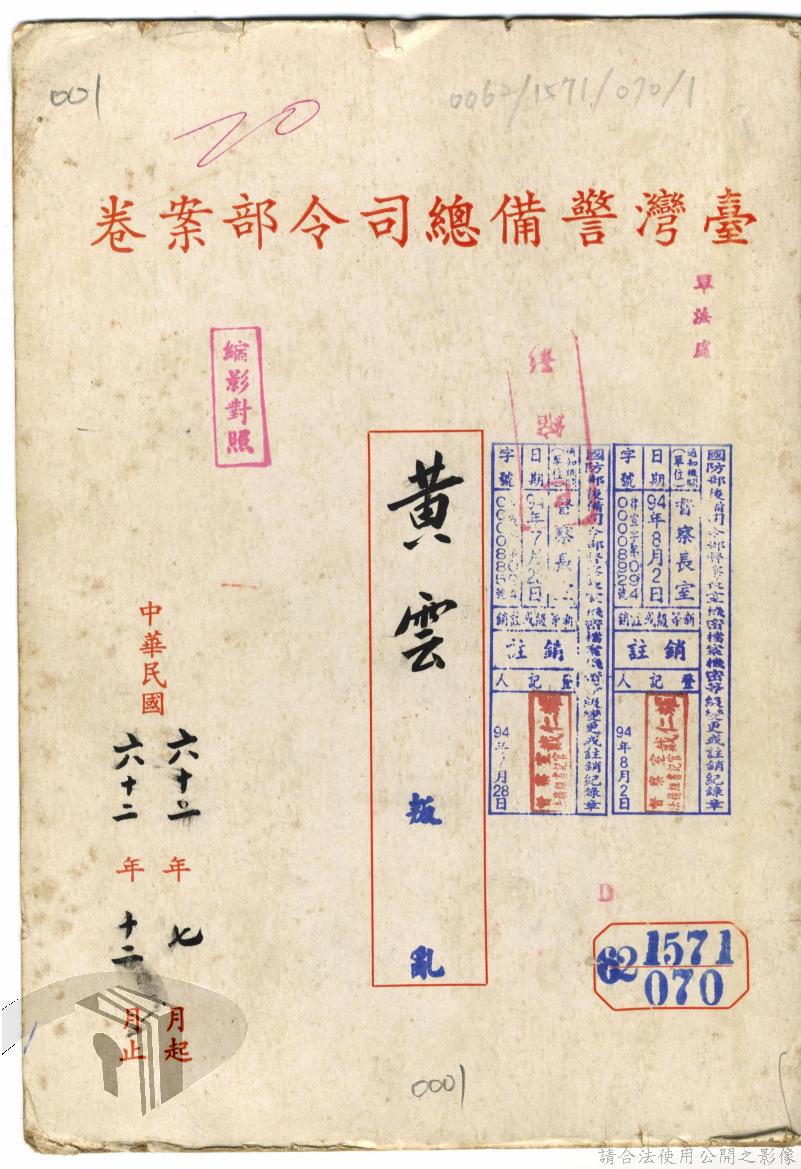 001
0062/1571/070/1
20
臺灣警備總司令部案卷
軍法處
縮影對照
國防部後備司令部督察長室機密檔案機密等級變更或註銷紀錄章
通知機關(單位) 督察長室
日期 94年8月2日
字號 0000892號
新等級或註銷
註銷
登記人
94年8月2日
國防部後備司令部督察長室機密檔案機密等級變更或註銷紀錄章
通知機關(單位) 督察長室
日期 94年7月2日
字號 0000885號
新等級或註銷
註銷
登記人
94年7月28日
黃雲 叛亂
中華民國
六十二年七月起
六十二年十二月止
D
62 1571
070
0001
請合法使用公開之影像